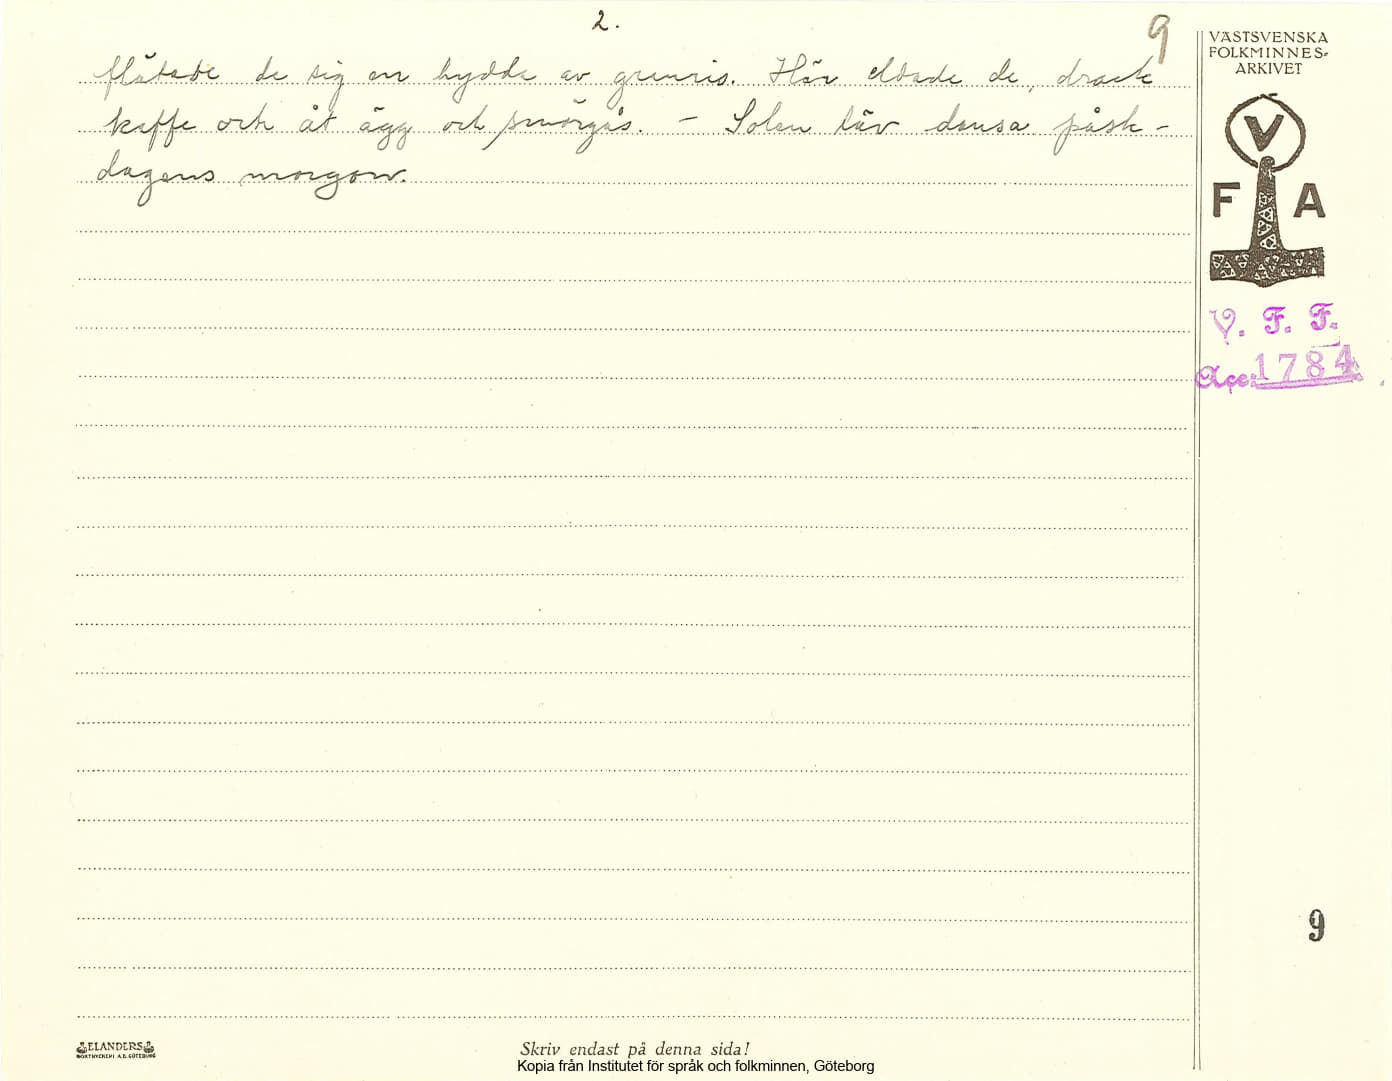 2.
9
flätade de sig en hydda av granris. Här eldade de, drack
kaffe och åt ägg och smörgås. – Solen läv dansa påsk-
dagens morgon.
VÄSTSVENSKA
FOLKMINNES-
ARKIVET
V
F A
V. F. F.
Acc: 1784
9
ELANDERS
BOKTRYCKERI A.B. GÖTEBORG
Skriv endast på denna sida!
Kopia från Institutet för språk och folkminnen, Göteborg